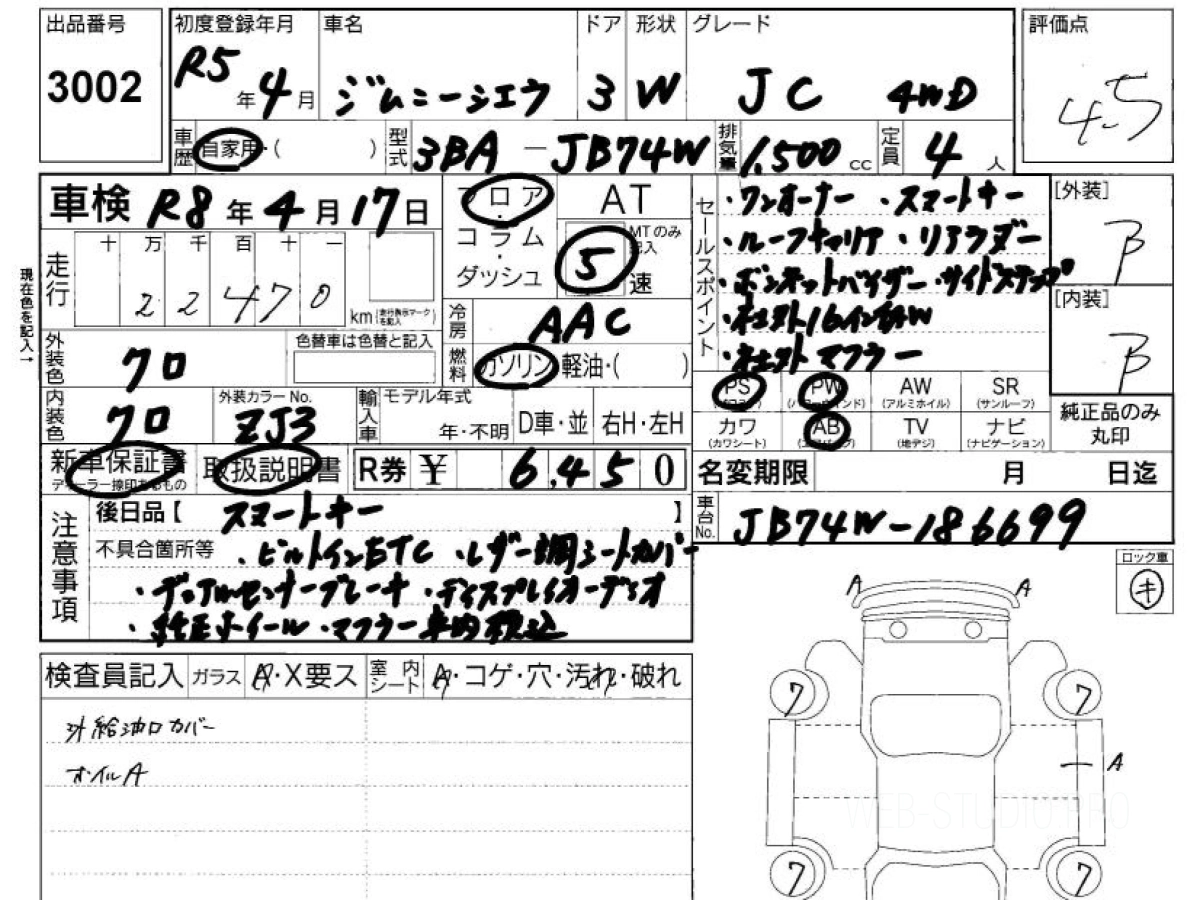 出品番号
3002
初度登録年月
R5年4月
車名
ジムニーシエラ
ドア
3
形状
W
グレード
JC 4WD
評価点
4.5
車歴
自家用・( )
型式
3BA-JB74W
排気量
1,500cc
定員
4人
車検 R8年4月17日
フロア・コラム・ダッシュ
AT
MTのみ記入
5速
セールスポイント
・ワンオーナー ・スマートキー
・ルーフキャリア ・リアラダー
・ボンネットバイザー ・サイドステップ
・社外16インチAW
・社外マフラー
[外装]
B
[内装]
B
現在色を記入→
走行
十万千百十一
22470
km(走行表示マークを記入)
冷房
AAC
燃料
ガソリン・軽油・( )
外装色
クロ
色替車は色替と記入
内装色
クロ
外装カラーNo.
ZJ3
輸入車
モデル年式
年・不明
D車・並
右H・左H
PS
(パワステ)
PW
(パワーウインド)
AW
(アルミホイル)
SR
(サンルーフ)
カワ
(カワシート)
AB
(エアバッグ)
TV
(地デジ)
ナビ
(ナビゲーション)
純正品のみ丸印
新車保証書
ディーラー捺印あるもの
取扱説明書
R券 ¥ 6,450
名変期限 月 日迄
注意事項
後日品【 スマートキー 】
不具合箇所等 ・ビルトインETC ・レザー調シートカバー
・デュアルセンサーブレーキ ・ディスプレイオーディオ
・純正ホイール・マフラー車内積込
車台No.
JB74W-186699
ロック車
キ
検査員記入
ガラス
A・X要ス
室内シート
A・コゲ・穴・汚れ・破れ
外給油口カバー
オイルA
A
A
ワ
ワ
A
ワ
ワ
WEB-STUDIO.PRO